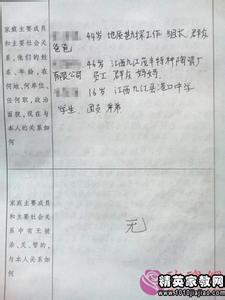 家庭主要成员
和主要社会关
系,他们的姓
名,年龄,在
何地,何单位,
任何职,政治
面貌,现在与
本人的关系如
何
44岁 地质勘探工作 组长 群众
爸爸
44岁 江西九江 特种陶瓷厂
有限公司 员工 群众 妈妈
16岁 江西九江县港口中学
学生 团员 弟弟
家庭主要成员
和主要社会关
系中有无被
杀、关、管的,
与本人关系如
何
无
精英家教网